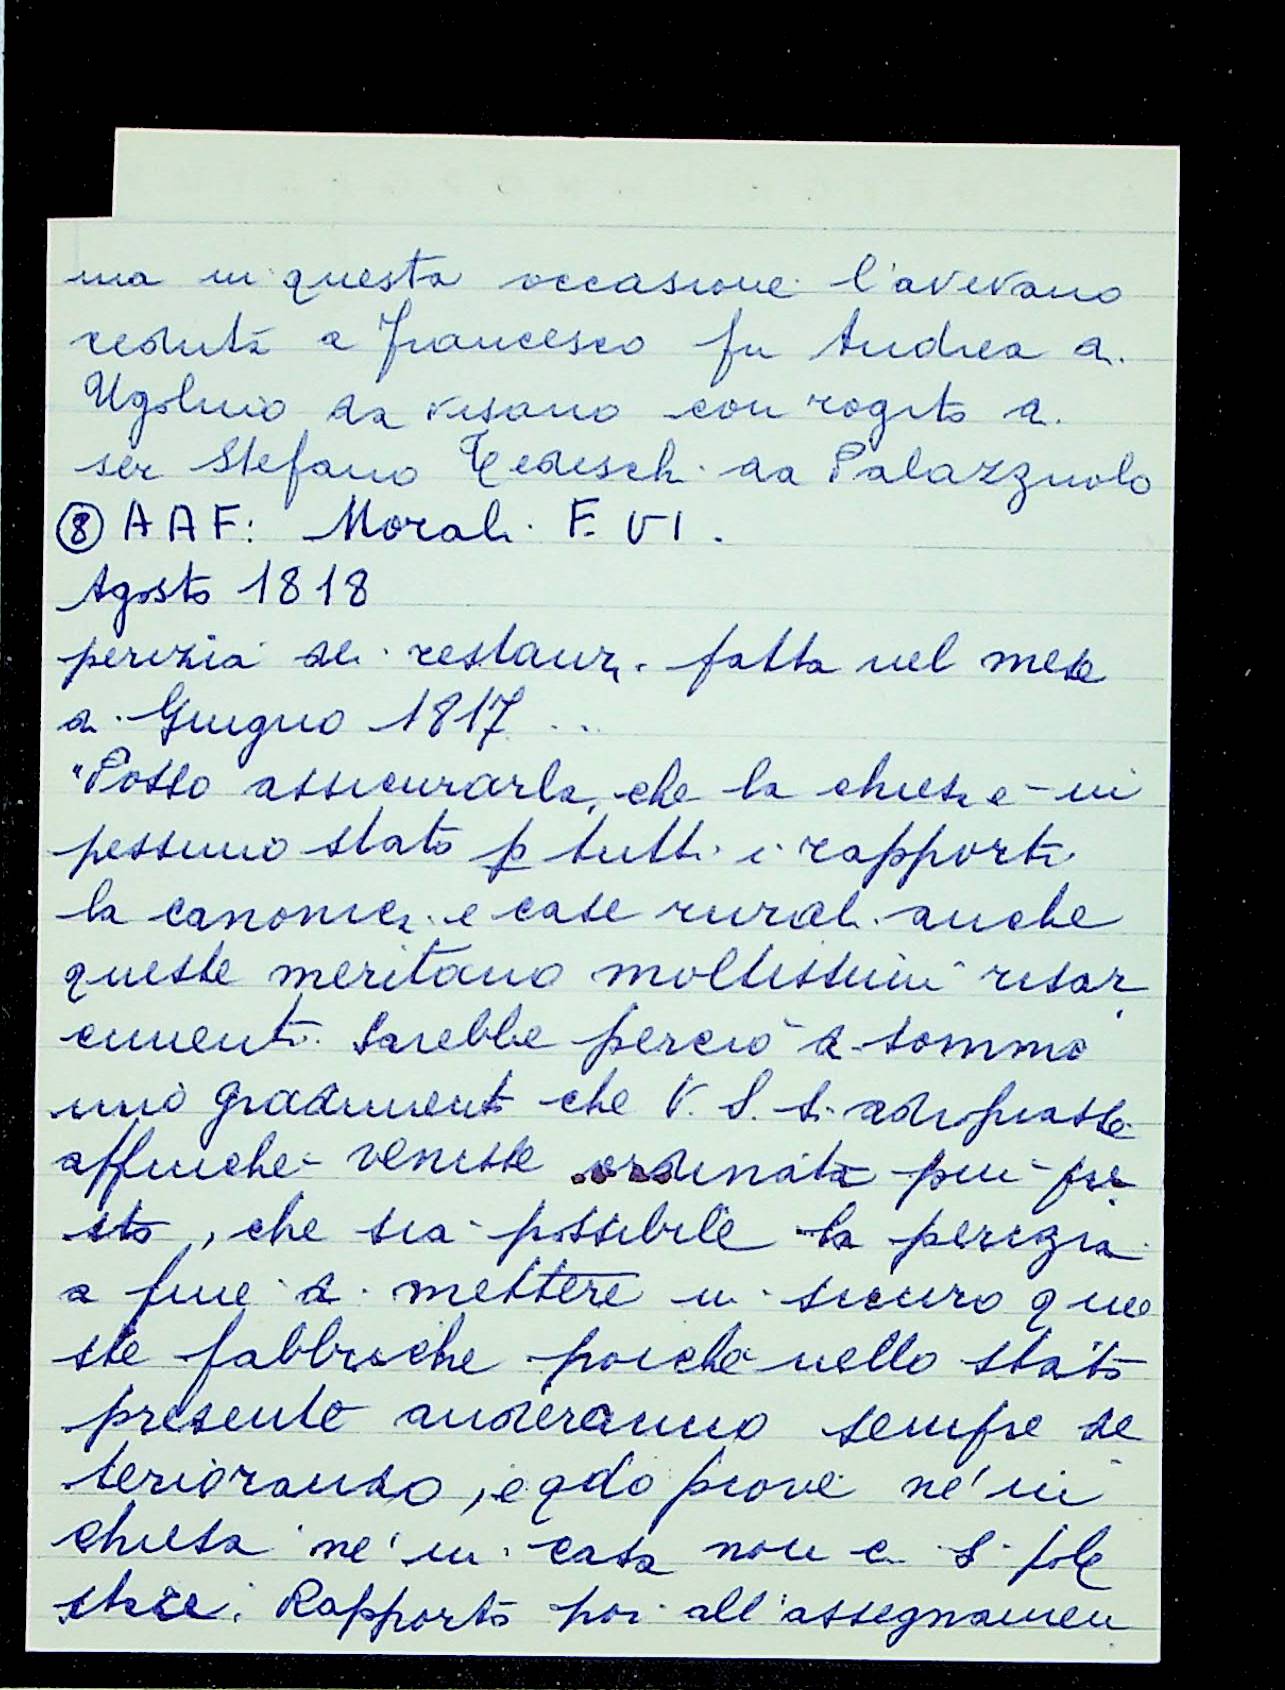 ma in questa occasione l'avevano
ceduta a Francesco fu Andrea di
Ugolino da Visano con rogito di
ser Stefano Tedeschi da Palazzuolo
⑧ AAF: Morali F. VI.
Agosto 1818
perizia dei restauri fatta nel mese
di Giugno 1817 ...
"Posso assicurarla, che la chiesa è in
pessimo stato p tutti i rapporti
la canonica e case rurali anche
queste meritano moltissimi risar
cimenti. Sarebbe perciò di sommo
mio gradimento che V. S. si adoprasse
affinché venisse ordinata più pre
sto, che sia possibile la perizia
a fine di mettere in sicuro que
ste fabbriche poiché nello stato
presente anderanno sempre de
teriorando, e qdo piove né in
chiesa né in casa non ci si pole
stare. Rapporto poi all'assegnamen